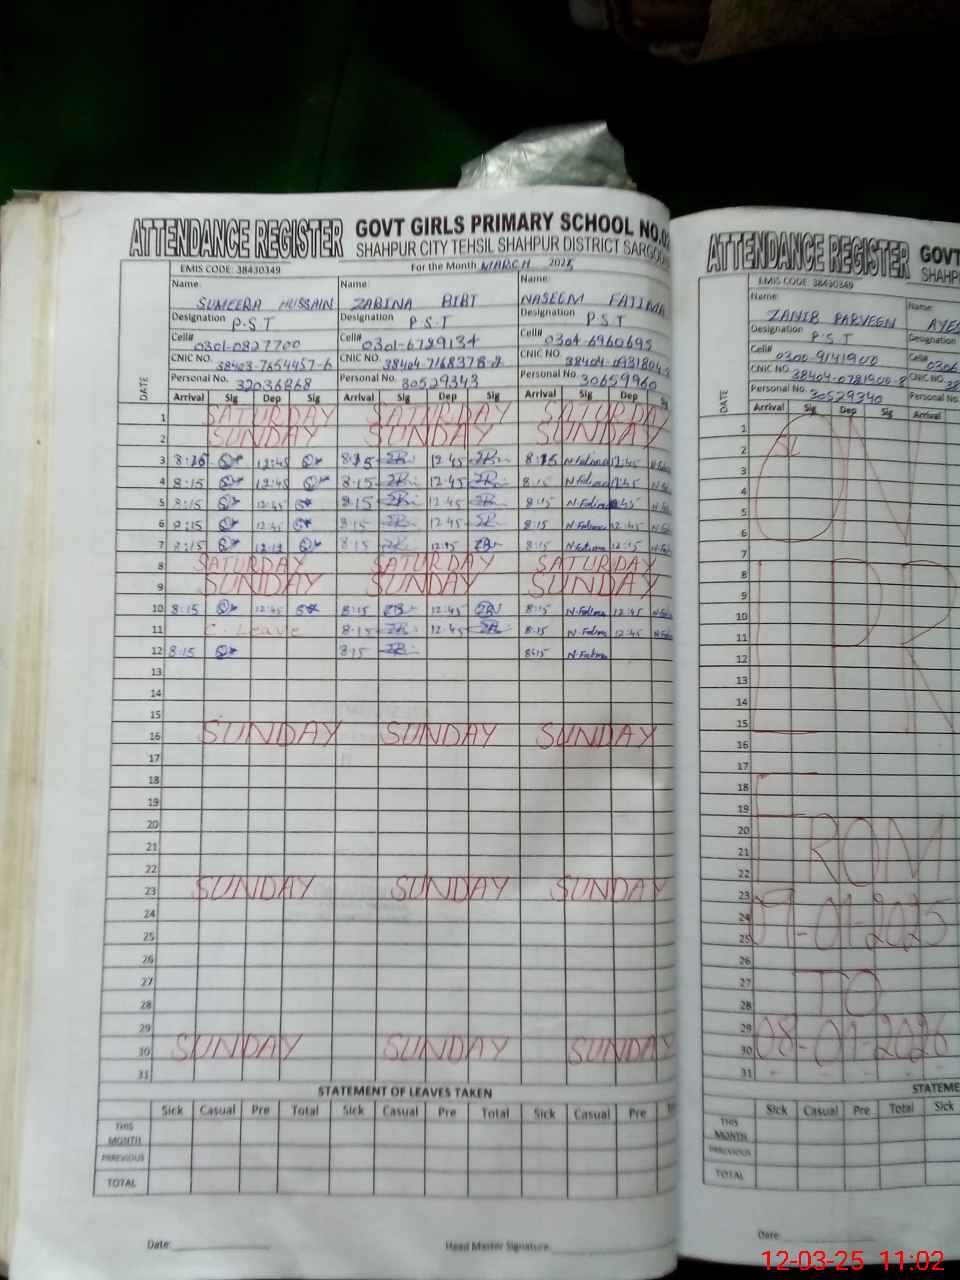 ATTENDANCE REGISTER GOVT GIRLS PRIMARY SCHOOL NO.02
SHAHPUR CITY TEHSIL SHAHPUR DISTRICT
EMIS CODE: 38430349 For the Month MARCH
Name: Name: Name:
SUMEERA HUSSAIN ZABINA BIBI NASEEM FATIMA
Designation P.S.T Designation P.S.T Designation P S T
Cell# Cell# Cell#
0301-0827700 0301-6789134 0304-6960695
CNIC NO. 38403-7654457-6 CNIC NO. CNIC NO.
Personal No. 32036868 Personal No. 30529343 Personal No. 30659960
DATE Arrival Sig Dep Sig Arrival Sig Dep Sig Arrival Sig Dep
1 SATURDAY SATURDAY SATURDAY
2 SUNDAY SUNDAY SUNDAY
3 8:15 12:45 8:15 12:45 8:15 N.Fatima 12:45
4 8:15 12:45 8:15 12:45 8:15 N.Fatima 12:45
5 8:15 12:45 8:15 12:45 8:15 N.Fatima
6 8:15 12:45 8:15 12:45 8:15 N.Fatima 12:45
7 8:15 8:15 12:45 8:15 N.Fatima 12:45
8 SATURDAY SATURDAY SATURDAY
9 SUNDAY SUNDAY SUNDAY
10 8:15 12:45 8:15 12:45 8:15 N.Fatima 12:45
11 C. Leave 8:15 12:45 8:15 N.Fatima 12:45
12 8:15 8:15 8:15 N.Fatima
13
14
15
16 SUNDAY SUNDAY SUNDAY
17
18
19
20
21
22
23 SUNDAY SUNDAY SUNDAY
24
25
26
27
28
29
30 SUNDAY SUNDAY SUNDAY
31
STATEMENT OF LEAVES TAKEN
Sick Casual Pre Total Sick Casual Pre Total Sick Casual Pre
THIS
MONTH
PAREVIOUS
TOTAL
Date: Head Master Signature
ATTENDANCE REGISTER GOVT
EMIS CODE: 38430349
Name: Name:
ZANIB PARVEEN
Designation P.S.T Designation
Cell# 0300-9141900 Cell#
CNIC NO. 38404-0781900-8 CNIC NO.
Personal No. 30529340 Personal No.
DATE Arrival Sig Dep Sig Arrival
1
2
3
4
5
6
ON
7
8
9
10
11
12
13
14
15
LPR
16
17
18
19
20
21
22
FROM
23
24
25
09-01-2025
26
27
28
TO
29
30
08-01-2026
31
STATEME
Sick Casual Pre Total Sick
THIS
MONTH
PAREVIOUS
TOTAL
Date:
12-03-25 11:02